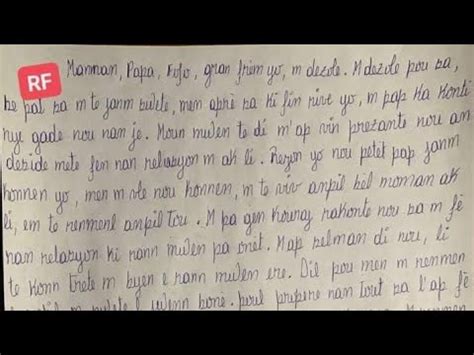 RF
Mannan, Papa, Fofo, gran frèm yo, m dezole. M dezole pou sa,
ke pat sa m te janm swete, men aprè sa ki fin rive yo, m pap ka konti
nye gade nou nan je. Moun mwen te di m'ap vin prezante nou an
deside mete fen nan relasyon m ak li. Rezon yo nou petèt pap janm
konnen yo, men m vle nou konnen, m te viv anpil bèl moman ak
li, e m te renmenl anpil tou. M pa gen kouraj rakonte nou sa m fè
nan relasyon ki rann mwen pa onèt. Map selman di nou, li
te konn trete m byen e rann mwen ere. Di l pou mwen m renmen
m swete l jwenn bonè. poul prospere nan tout sa l'ap fè